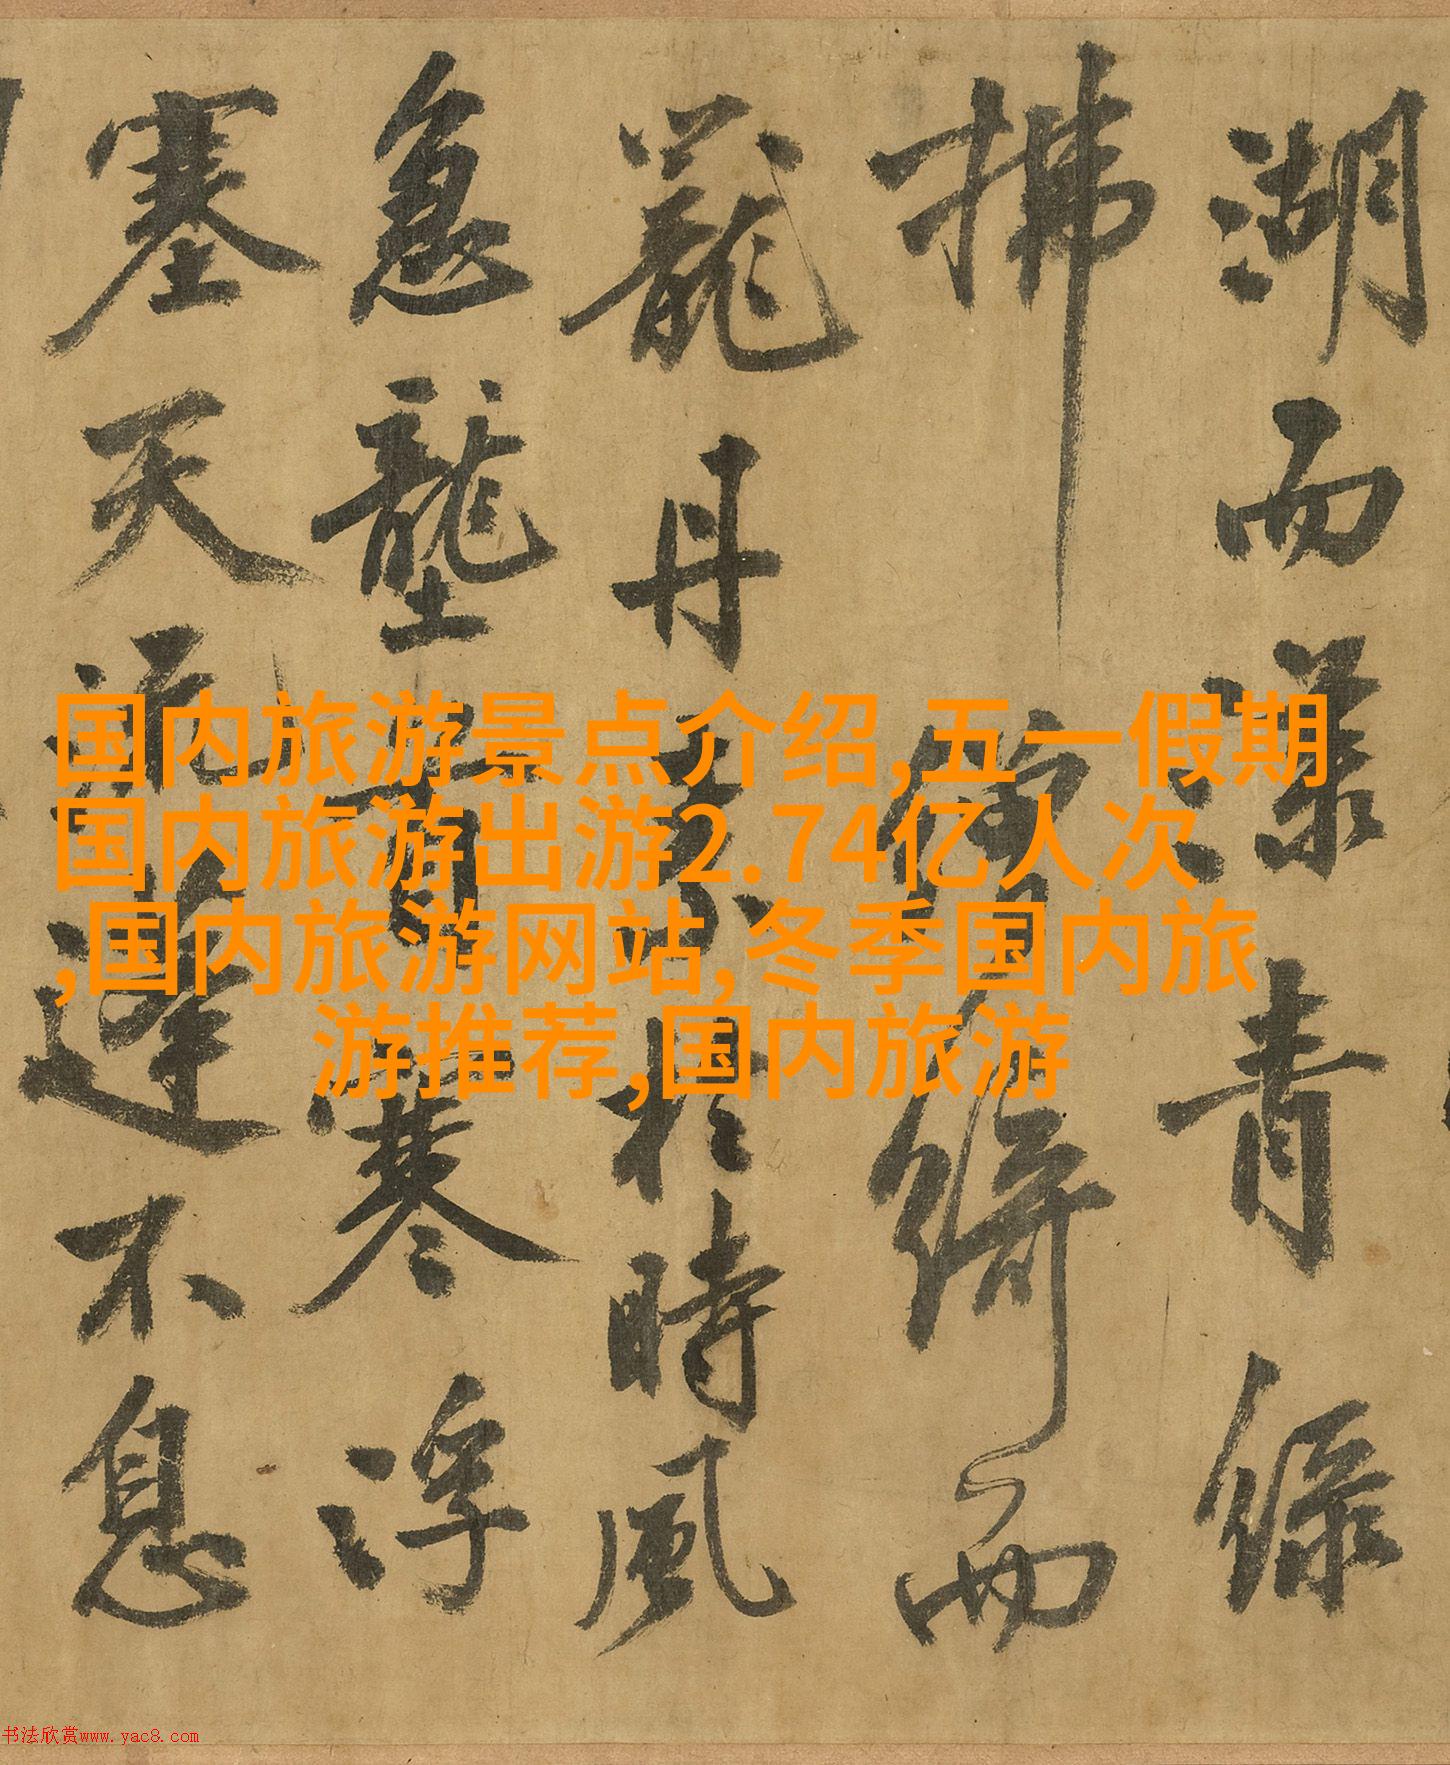 国内旅游景点介绍,五一假期
国内旅游出游2.74亿人次
,国内旅游网站,冬季国内旅
游推荐,国内旅游
湖而漾青綠
拂綺而
蘢丹於時風
急壟首寒浮
塞天流蓬不息
书法欣赏www.yac8.com